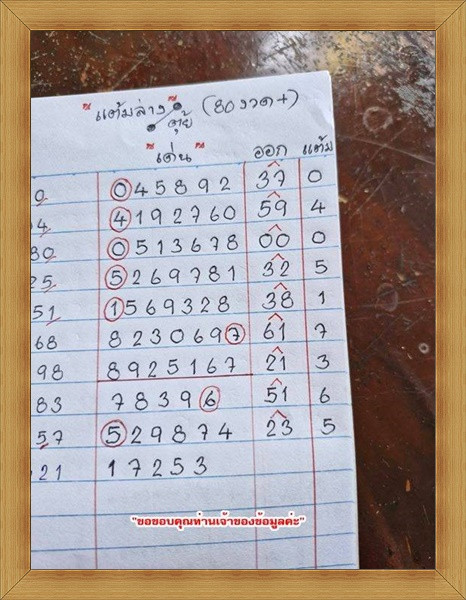 "แต้มล่าง" (80 งวด+)
ตุ้ย
"เด่น" ออก แต้ม
0 045892 37 0
4 4192760 59 4
80 0513678 00 0
25 5269781 32 5
51 1569328 38 1
68 8230697 61 7
98 8925167 21 3
83 78396 51 6
57 529874 23 5
21 17253
"ขอขอบคุณท่านเจ้าของข้อมูลค่ะ"